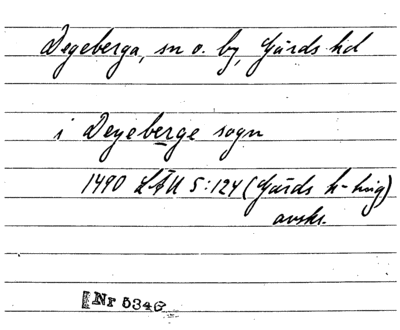 Degeberga, sn o. by, Gärds hd
i Degeberge sogn
1490 LÄU 5:124 (Gärds h-ting)
avskr.
Nr 5346